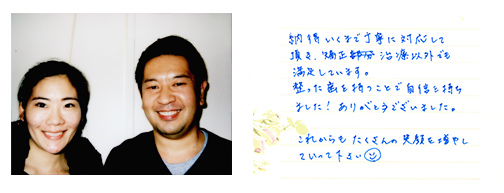 納得いくまで丁寧に対応して
頂き、矯正部分治療以外でも
満足しています。
整った歯を持つことで自信を持ち
ました！ありがとうございました。
これからもたくさんの笑顔を増やし
ていって下さい